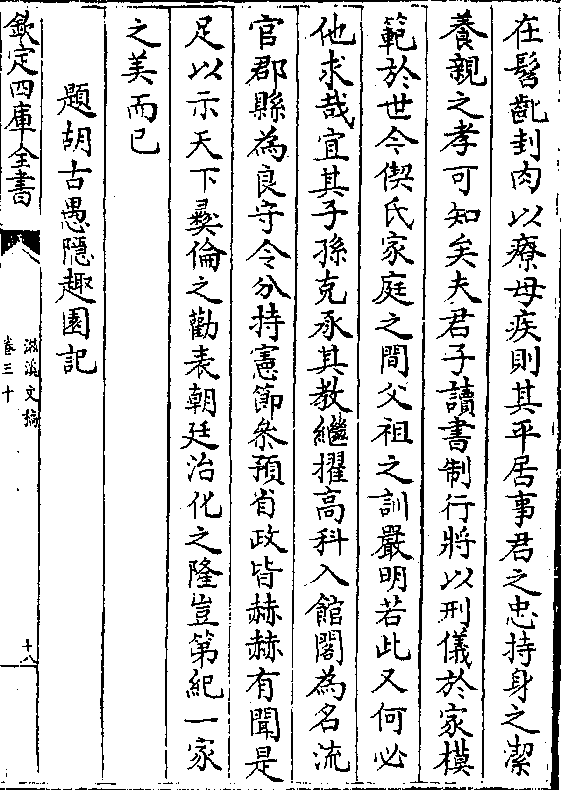 在髫齔刲肉以療母疾則其平居事君之忠持身之潔
養親之孝可知矣夫君子讀書制行將以刑儀於家模
範於世今偰氏家庭之間父祖之訓嚴明若此又何必
他求哉宜其子孫克承其教繼擢高科入館閣為名流
官郡縣為良守令分持憲節叅預省政皆赫赫有聞是
足以示天下彝倫之勸表朝廷治化之隆豈第紀一家
之美而已
題胡古愚隱趣園記
欽定四庫全書
滋溪文稿
卷三十
十八